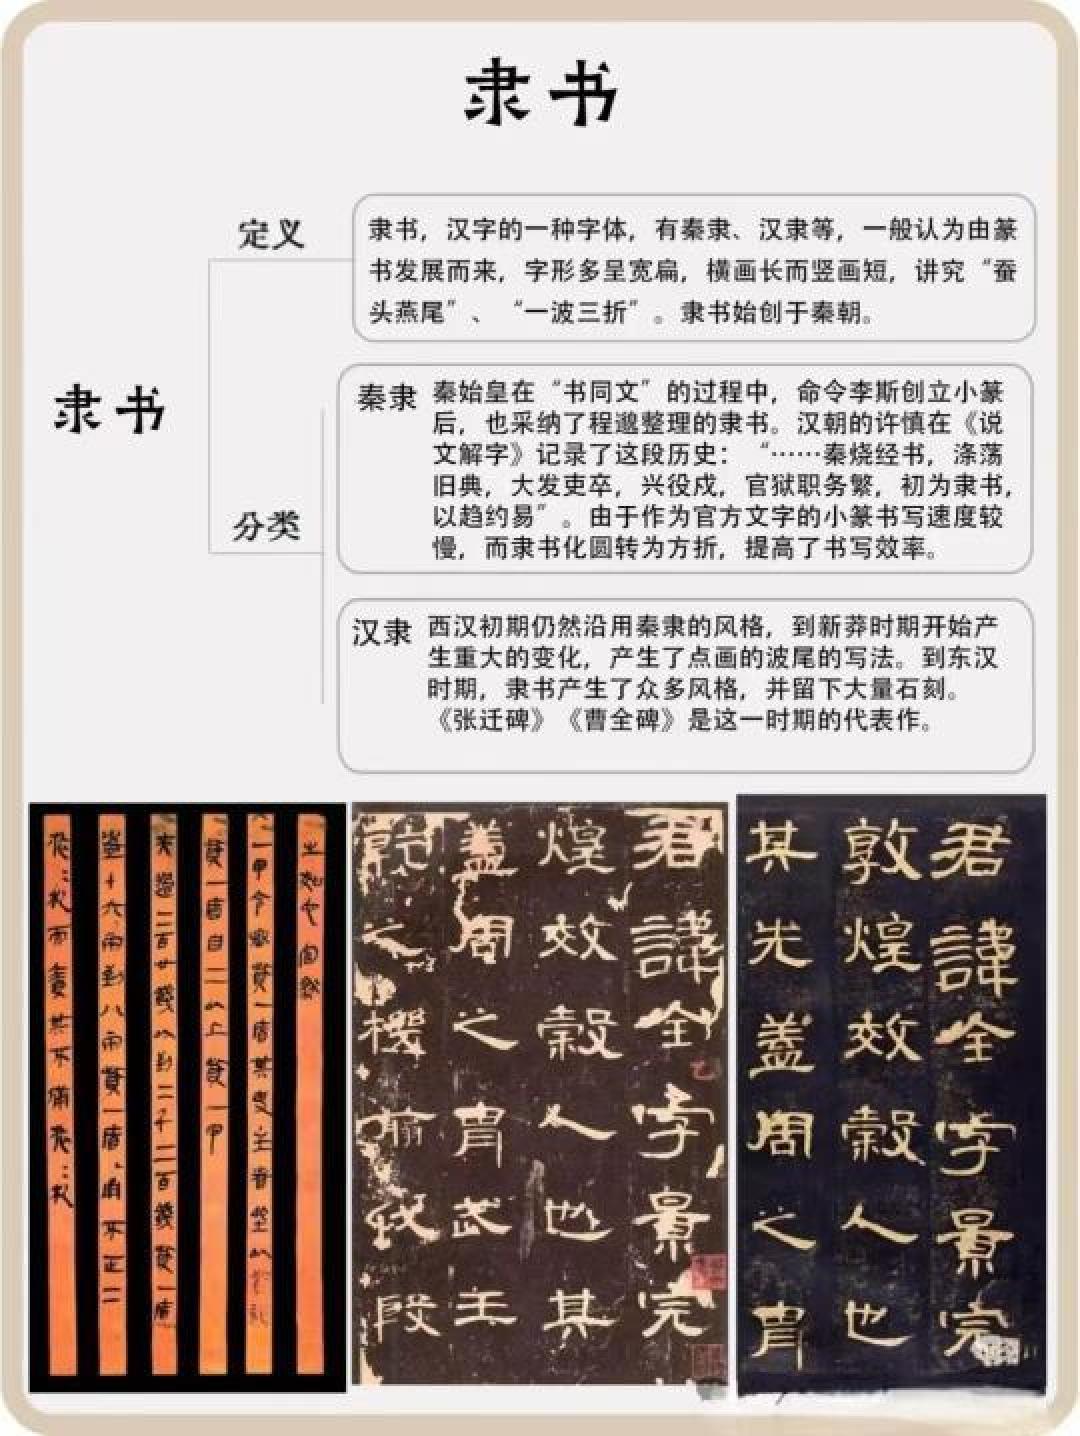 隶书
定义
隶书，汉字的一种字体，有秦隶、汉隶等，一般认为由篆
书发展而来，字形多呈宽扁，横画长而竖画短，讲究“蚕
头燕尾”、“一波三折”。隶书始创于秦朝。
隶书
分类
秦隶
秦始皇在“书同文”的过程中，命令李斯创立小篆
后，也采纳了程邈整理的隶书。汉朝的许慎在《说
文解字》记录了这段历史：“……秦烧经书，涤荡
旧典，大发吏卒，兴役戍，官狱职务繁，初为隶书，
以趋约易”。由于作为官方文字的小篆书写速度较
慢，而隶书化圆转为方折，提高了书写效率。
汉隶
西汉初期仍然沿用秦隶的风格，到新莽时期开始产
生重大的变化，产生了点画的波尾的写法。到东汉
时期，隶书产生了众多风格，并留下大量石刻。
《张迁碑》《曹全碑》是这一时期的代表作。
君諱全字景完
煌效穀人也其
蓋周之胄武王
乾之機翦伐殷
君諱全字景完
敦煌效穀人也
其先蓋周之胄